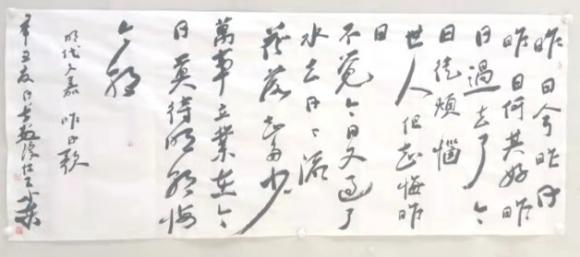 昨日兮昨日
昨日何其好昨
日過去了今
日徒煩惱
世人但知悔昨
日
不覺今日又過了
水去日日流
落日少
萬事立業在今
日莫待明朝悔
今朝
明代文嘉 昨日歌
辛丑夏日